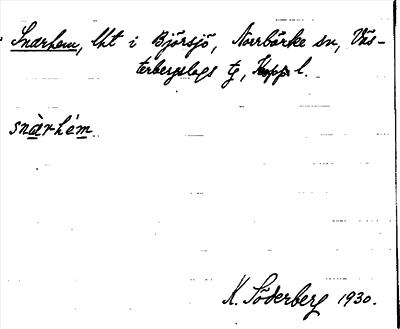 Snarhem, lht i Björsjö, Norrbärke sn, Väs-
terbergslags tg, Kopp. l.
snàrhém
K. Söderberg 1930.